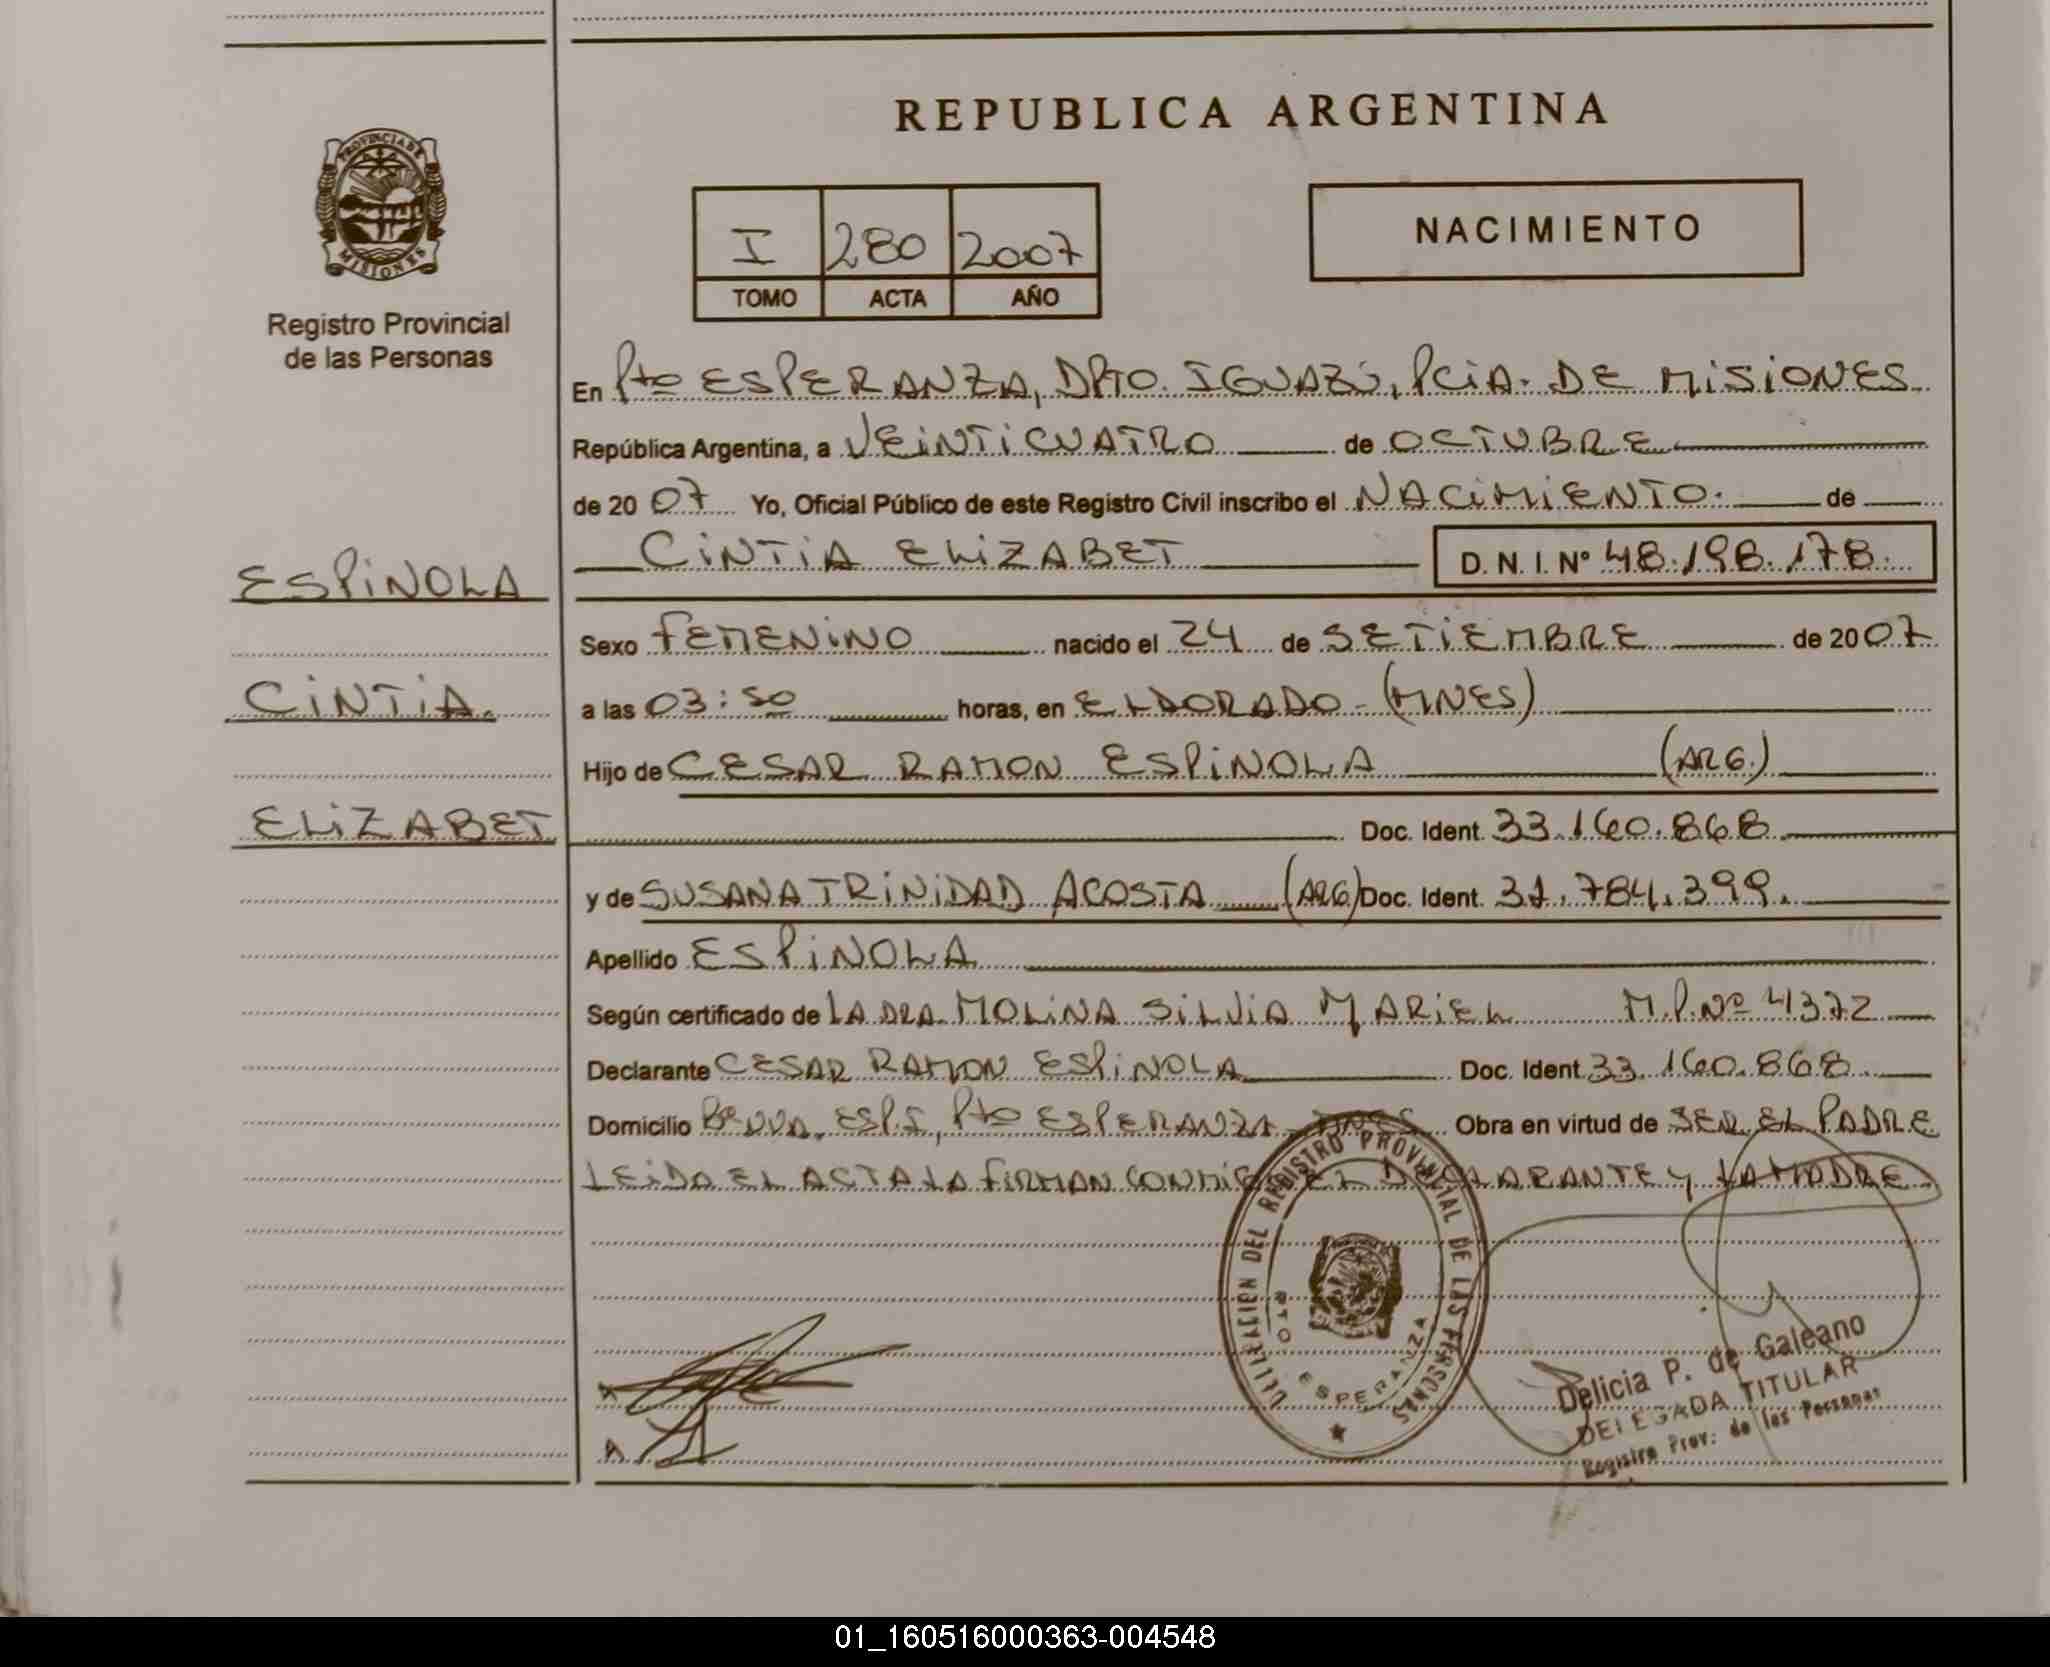 REPUBLICA ARGENTINA
PROVINCIA DE
MISIONES
Registro Provincial
de las Personas
I 280 2007
TOMO ACTA AÑO
NACIMIENTO
En Pto ESPERANZA, DPTO. IGUAZÚ, PCIA. DE MISIONES
República Argentina, a VEINTICUATRO de OCTUBRE
de 2007 Yo, Oficial Público de este Registro Civil inscribo el NACIMIENTO. de
CINTIA ELIZABET D. N. I. Nº 48.198.178.
ESPINOLA
CINTIA.
ELIZABET
Sexo FEMENINO nacido el 24 de SETIEMBRE de 2007
a las 03:50 horas, en ELDORADO - (MNES)
Hijo de CESAR RAMON ESPINOLA (ARG.)
Doc. Ident. 33.160.868
y de SUSANA TRINIDAD ACOSTA (ARG) Doc. Ident. 31.784.399.
Apellido ESPINOLA
Según certificado de LA DRA MOLINA SILVIA MARIEL M.P.Nº 4372
Declarante CESAR RAMON ESPINOLA Doc. Ident. 33.160.868
Domicilio Bº VVA. ESP.I, Pto ESPERANZA - MNES Obra en virtud de SER EL PADRE
LEIDA EL ACTA LA FIRMAN CONMIGO EL DECLARANTE Y LA MADRE.
DELEGACION DEL REGISTRO PROVINCIAL DE LAS PERSONAS
PTO ESPERANZA
Delicia P. de Galeano
DELEGADA TITULAR
Registro Prov: de las Personas
01_160516000363-004548